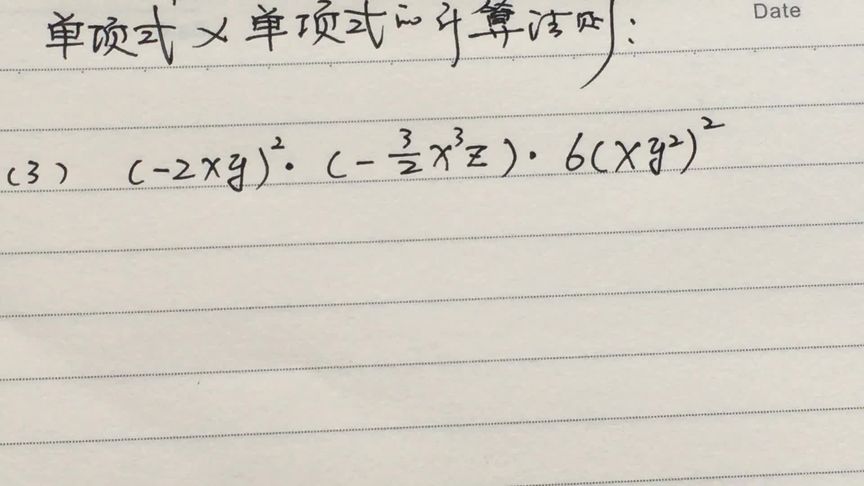 Date
单项式×单项式的计算法则:
(3) (-2xy)²·(-3/2x³z)·6(xy²)²